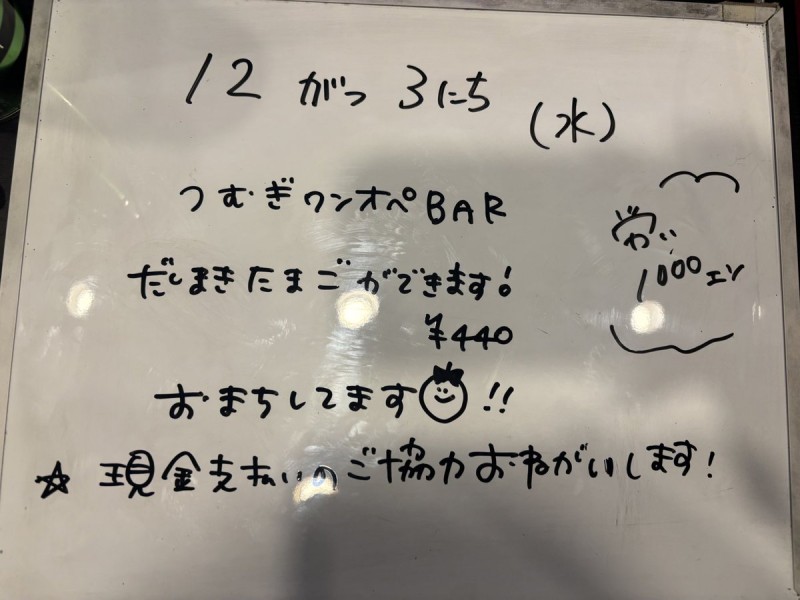 12 がつ 3にち (水)
つむぎワンオペBAR
だしまきたまごができます!
¥440
おまちしてます!!
☆ 現金支払いのご協力おねがいします!
1000エン